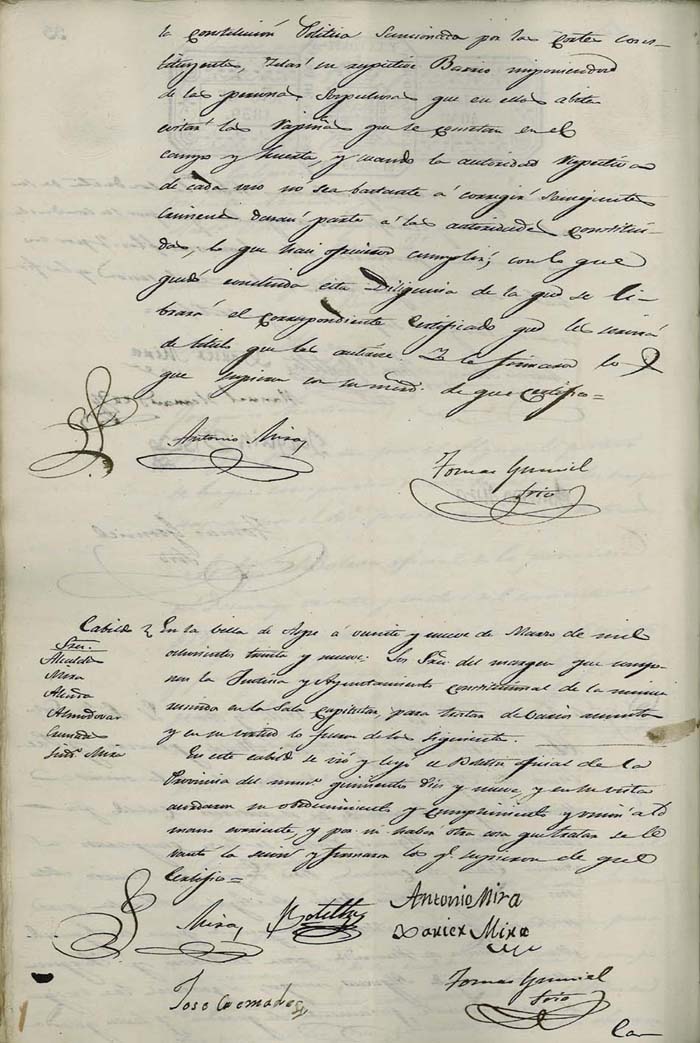 la Constitucion Politica Sancionada por las Cortes cons-
tituyentes, Zelar en respectivo Barrio imponiendo
de las personas Sospechosas que en ellos abite
evitar las Rapiñas que se cometan en el
campo y huerta, y cuando la autoridad respectiva
de cada uno no sea bastante á corregir Semejantes
crimenes daran parte á las autoridades Constitui-
das, lo que han ofrecido cumplir; con lo que
quedó concluida esta Diligencia de la que se li-
brará el correspondiente Certificado que les servirá
de titulo que les autorice. Y lo firmaron los
que supieron con su mrd. de que Certifico=
Antonio Mira,
Tomas Gumiel
Srio
Cabildo En la Villa de Aspe á veinte y nueve de Marzo de mil
Sres.
Alcalde
Mira
Almodovar
Cremades
Sindo. Mira
ochocientos treinta y nueve. Los Sres. del margen que compo-
nen la Justicia y Ayuntamiento constitucional de la misma
reunidos en la Sala capitular para tratar de varios asuntos
y en su virtud lo fueron de los siguientes.
En este cabildo se vió y leyó el Boletin oficial de la
Provincia del numº quinientos dies y nueve, y en su vista
acordaron su obedecimiento y cumplimiento y
y por no haber otra cosa que tratar se le
vantó la sesion y firmaron los q. supieron de que
Certifico=
Mira, Botella
Antonio Mira
Xavier Mira
Jose Cremades
Tomas Gumiel
Srio